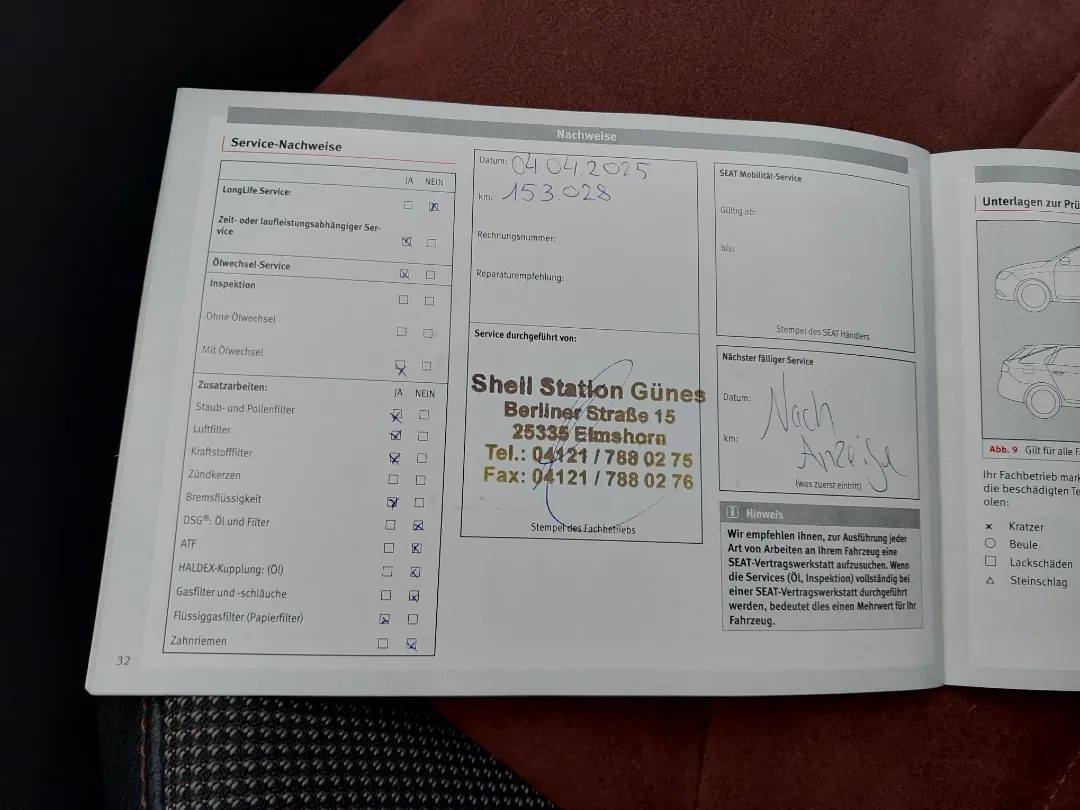 Nachweise
Service-Nachweise
JA NEIN
LongLife Service:
Zeit- oder laufleistungsabhängiger Ser-
vice
Ölwechsel-Service
Inspektion
Ohne Ölwechsel
Mit Ölwechsel
Zusatzarbeiten: JA NEIN
Staub- und Pollenfilter
Luftfilter
Kraftstofffilter
Zündkerzen
Bremsflüssigkeit
DSG®: Öl und Filter
ATF
HALDEX-Kupplung: (Öl)
Gasfilter und -schläuche
Flüssiggasfilter (Papierfilter)
Zahnriemen
32
Datum: 04.04.2025
km: 153.028
Rechnungsnummer:
Reparaturempfehlung:
Service durchgeführt von:
Shell Station Günes
Berliner Straße 15
25335 Elmshorn
Tel.: 04121 / 788 02 75
Fax: 04121 / 788 02 76
Stempel des Fachbetriebs
SEAT Mobilität-Service
Gültig ab:
bis:
Stempel des SEAT Händlers
Nächster fälliger Service
Datum: Nach
km: Anzeige
(was zuerst eintritt)
Hinweis
Wir empfehlen Ihnen, zur Ausführung jeder
Art von Arbeiten an Ihrem Fahrzeug eine
SEAT-Vertragswerkstatt aufzusuchen. Wenn
die Services (Öl, Inspektion) vollständig bei
einer SEAT-Vertragswerkstatt durchgeführt
werden, bedeutet dies einen Mehrwert für Ihr
Fahrzeug.
Unterlagen zur Prü
Abb. 9 Gilt für alle F
Ihr Fachbetrieb mark
die beschädigten Te
olen:
Kratzer
Beule
Lackschäden
Steinschlag